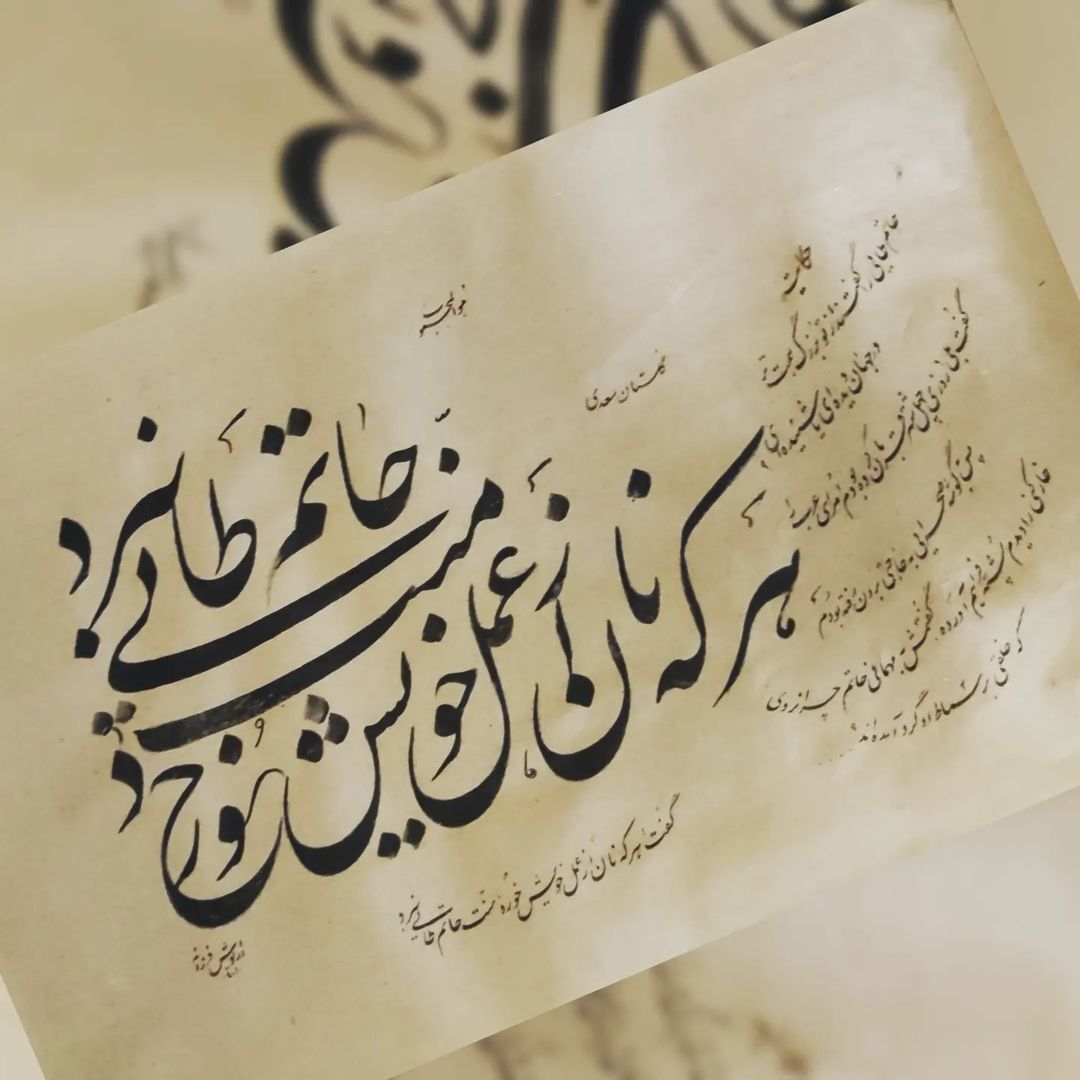 هوالمحبوب
گلستان سعدی
حکایت
حاتم طایی را گفتند از تو بزرگ همت تر
در جهان دیده‌ای یا شنیده‌ای؟
گفت بلی روزی چهل شتر قربان کرده بودم امرای عرب را
پس به گوشه صحرایی به حاجتی برون رفته بودم
خارکنی را دیدم پشته فراهم آورده. گفتمش به مهمانی حاتم چرا نروی
که خلقی بر سماط او گرد آمده‌اند؟
هر که نان از عمل خویش خورد
منت حاتم طائی نبرد
گفت هر که نان از عمل خویش خورد منت حاتم طائی نبرد